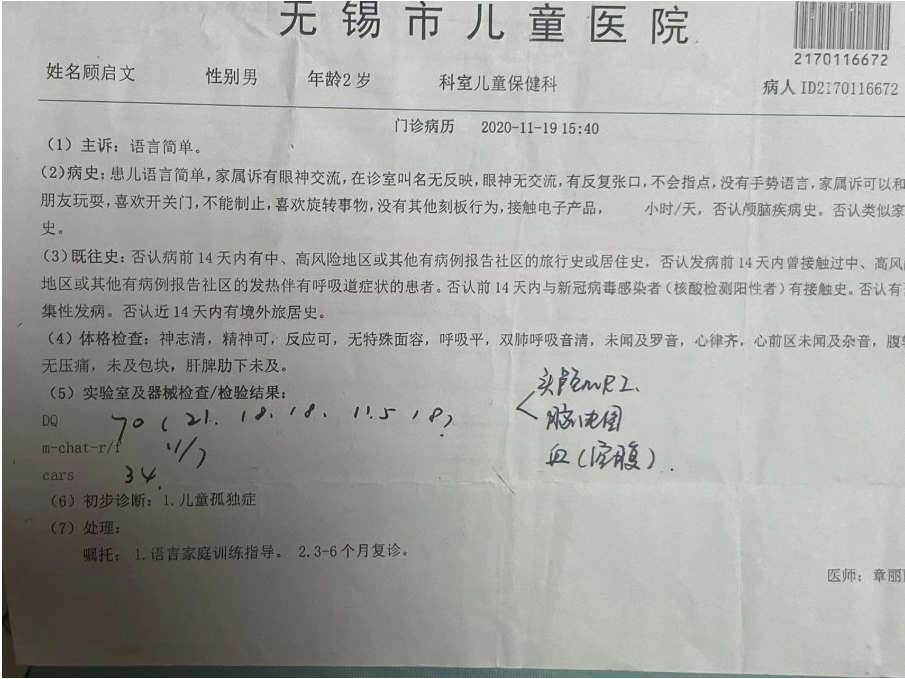 无锡市儿童医院
2170116672
姓名顾启文 性别男 年龄2岁 科室儿童保健科 病人ID2170116672
门诊病历 2020-11-19 15:40
(1)主诉：语言简单。
(2)病史：患儿语言简单，家属诉有眼神交流，在诊室叫名无反映，眼神无交流，有反复张口，不会指点，没有手势语言，家属诉可以和
朋友玩耍，喜欢开关门，不能制止，喜欢旋转事物，没有其他刻板行为，接触电子产品， 小时/天，否认颅脑疾病史。否认类似家
史。
(3)既往史：否认病前14天内有中、高风险地区或其他有病例报告社区的旅行史或居住史，否认发病前14天内曾接触过中、高风
地区或其他有病例报告社区的发热伴有呼吸道症状的患者。否认前14天内与新冠病毒感染者（核酸检测阳性者）有接触史。否认有
集性发病。否认近14天内有境外旅居史。
(4)体格检查：神志清，精神可，反应可，无特殊面容，呼吸平，双肺呼吸音清，未闻及罗音，心律齐，心前区未闻及杂音，腹
无压痛，未及包块，肝脾肋下未及。
(5)实验室及器械检查/检验结果：
头颅MRI、
DQ 70（21. 18. 18. 11.5 18）
脑电图
m-chat-r/f 11/7
血（空腹）.
cars 34.
(6)初步诊断：1.儿童孤独症
(7)处理：
嘱托：1.语言家庭训练指导。 2.3-6个月复诊。
医师：章丽